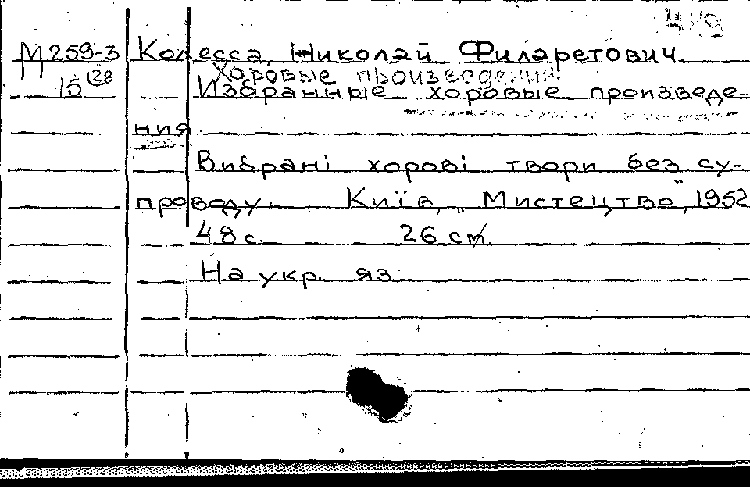 М 259-3 Колесса, Николай Филаретович.
15 Хоровые произведения
Избранные хоровые произведе-
ния.
Вибрані хорові твори без су-
проводу. Київ, "Мистецтво", 1952
48 с. 26 см.
На укр. яз.